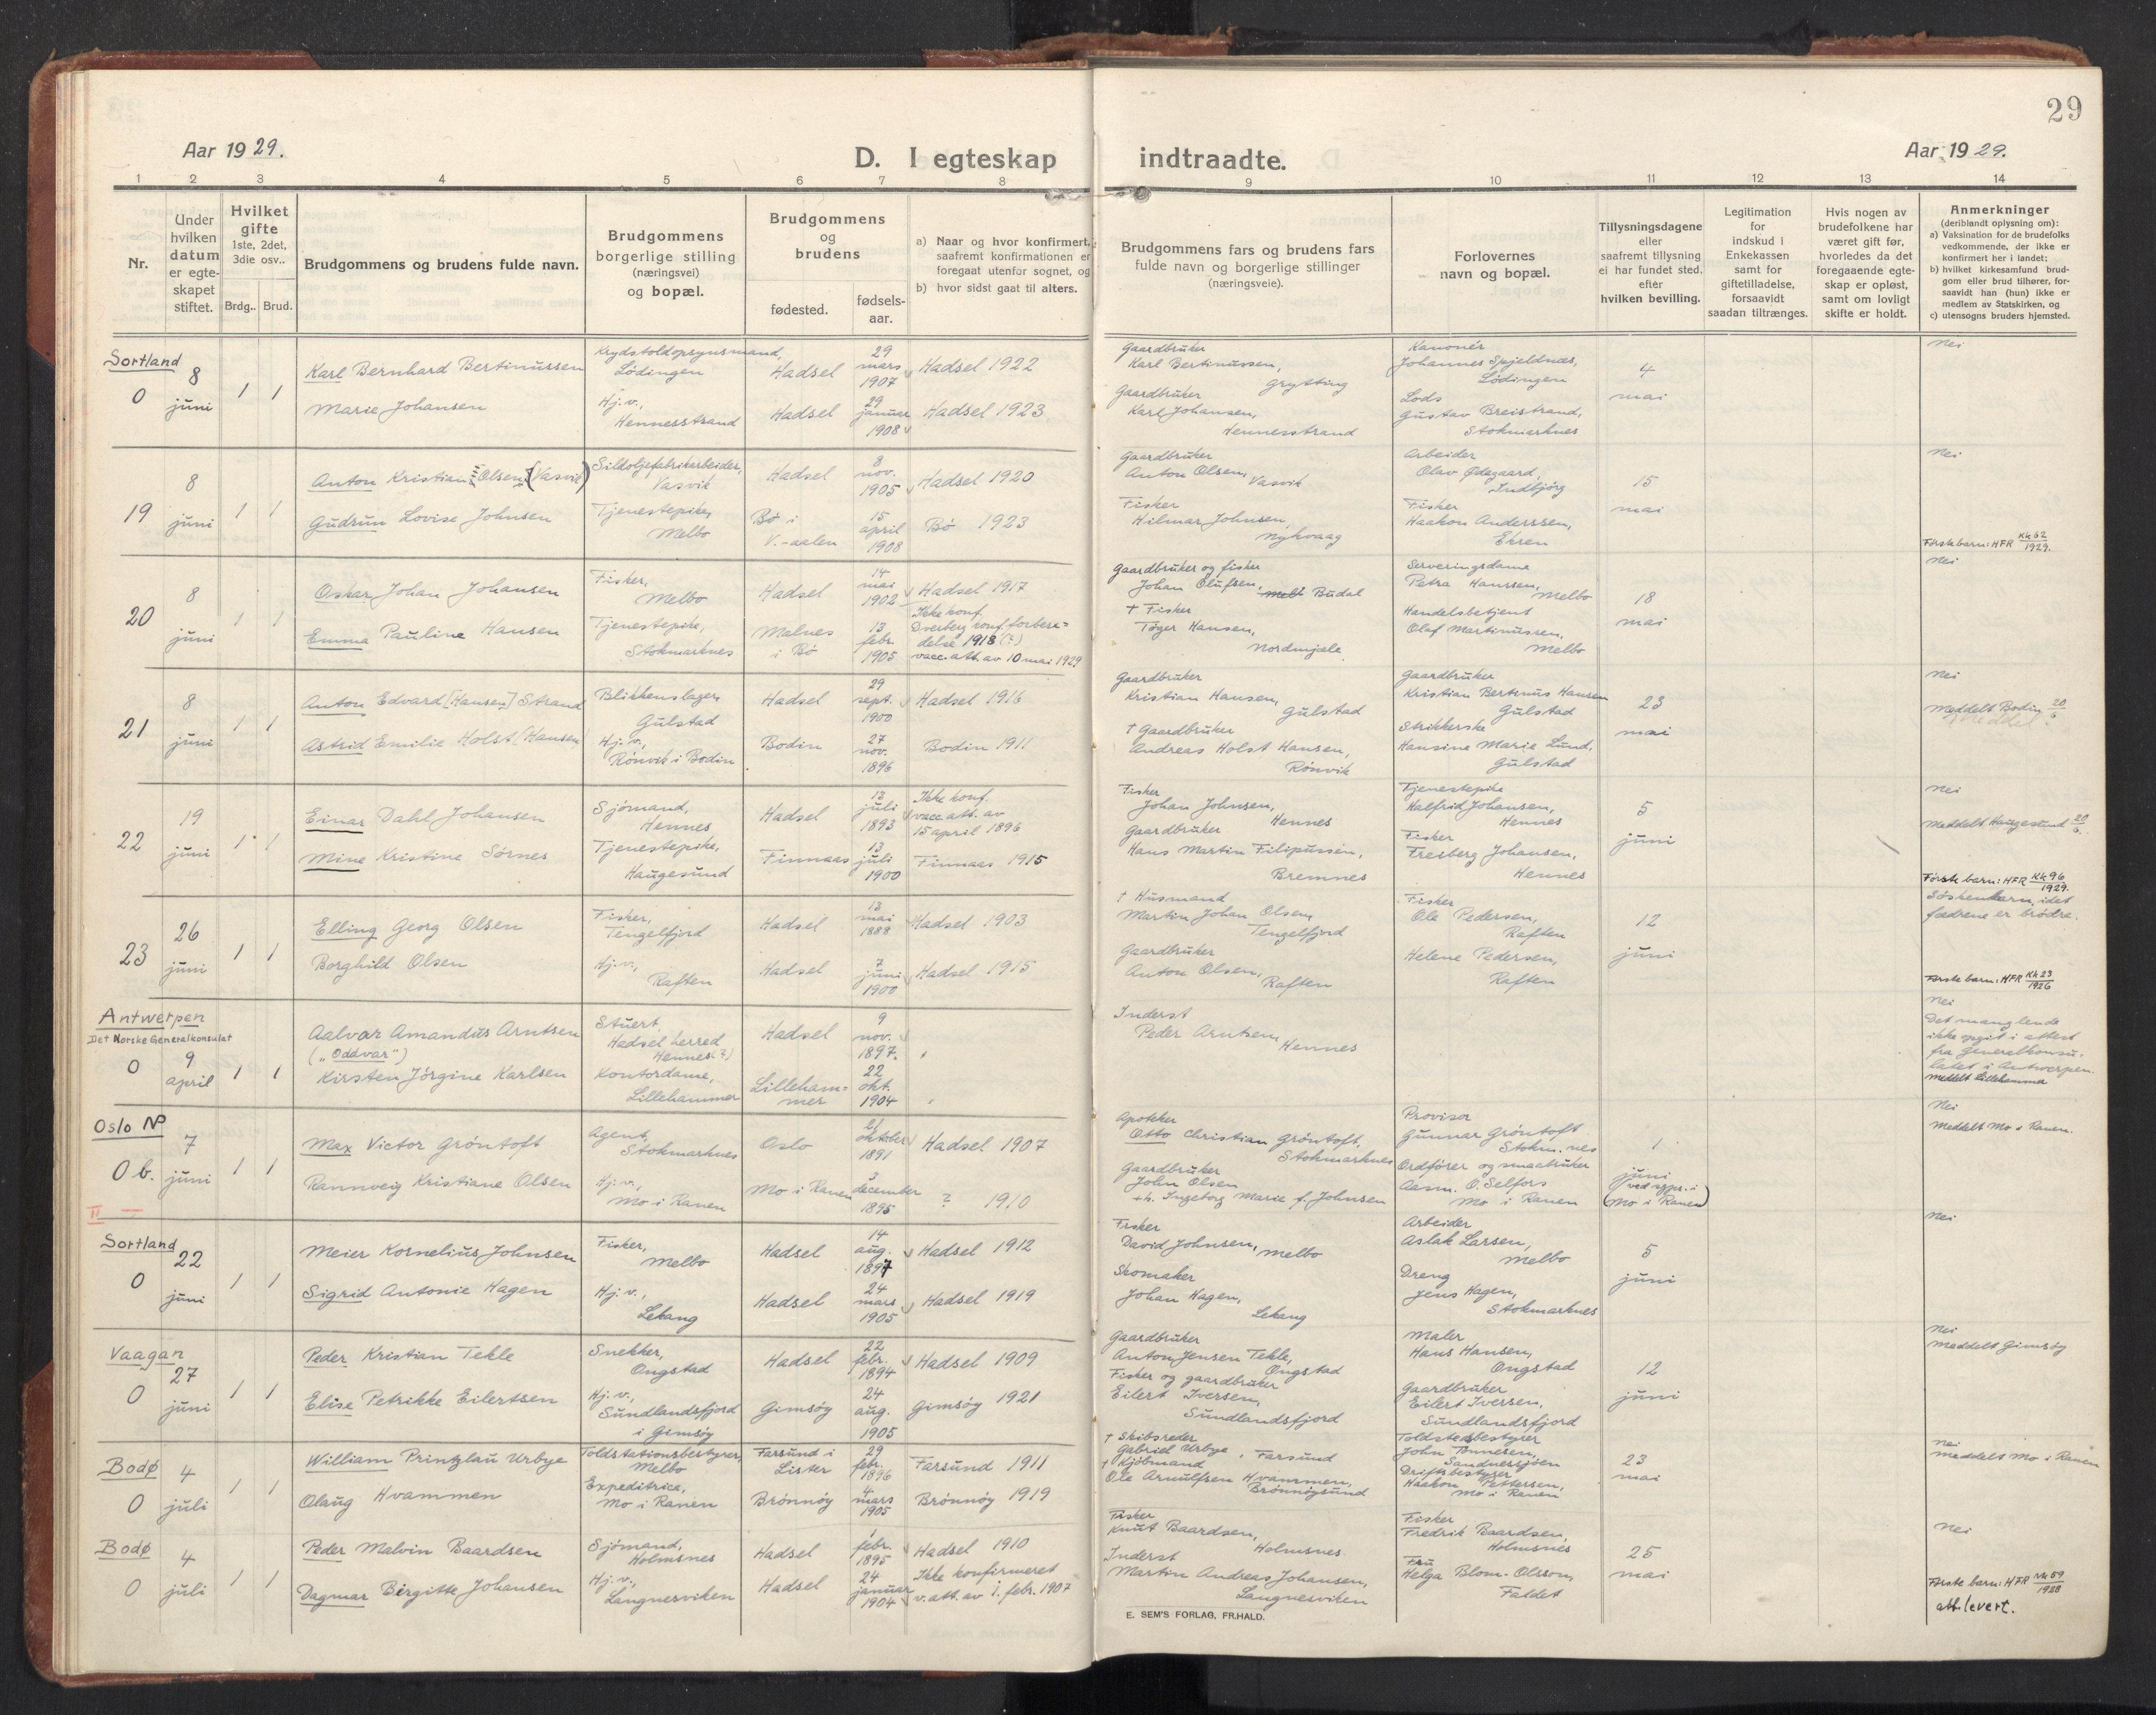 29
Aar 1929.
D. I egteskap indtraadte.
Aar 1929.
1 2 3 4 5 6 7 8 9 10 11 12 13 14
Nr.
Under hvilken datum er egte-skapet stiftet.
Hvilket gifte 1ste, 2det, 3die osv..
Brdg.. Brud.
Brudgommens og brudens fulde navn.
Brudgommens borgerlige stilling (næringsvei) og bopæl.
Brudgommens og brudens
fødested.
fødsels-aar.
a) Naar og hvor konfirmert, saafremt konfirmationen er foregaat utenfor sognet, og
b) hvor sidst gaat til alters.
Brudgommens fars og brudens fars fulde navn og borgerlige stillinger (næringsveie).
Forlovernes navn og bopæl.
Tillysningsdagene eller saafremt tillysning ei har fundet sted. efter hvilken bevilling.
Legitimation for indskud i Enkekassen samt for giftetilladelse, forsaavidt saadan tiltrænges.
Hvis nogen av brudefolkene har været gift før, hvorledes da det foregaaende egte-skap er opløst, samt om lovligt skifte er holdt.
Anmerkninger (deriblandt oplysning om):
a) Vaksination for de brudefolks vedkommende, der ikke er konfirmert her i landet;
b) hvilket kirkesamfund brud-gom eller brud tilhører, for-saavidt han (hun) ikke er medlem av Statskirken, og
c) utensogns bruders hjemsted.
Sortland
0
8 juni
1 1
Karl Bernhard Bertinussen
Krydstoldopsynsmand, Lödingen
Hadsel
29 mars 1907
Hadsel 1922
Gaardbruker Karl Bertinussen, Grytting
Kanonér Johannes Spjeldnæs, Lödingen
4 mai
Nei
Marie Johansen
Hj.v., Hennesstrand
Hadsel
29 januar 1908
Hadsel 1923
Gaardbruker Karl Johansen, Hennesstrand
Lods Gustav Breistrand, Stokmarknes
19
8 juni
1 1
Anton Kristian Olsen (Vasvik)
Sildoljefabrikarbeider, Vasvik
Hadsel
8 nov. 1905
Hadsel 1920
Gaardbruker Anton Olsen, Vasvik
Arbeider Olav Ødegaard, Indbjörg
15 mai
Nei
Gudrun Lovise Johnsen
Tjenestepike, Melbo
Bö i V.-aalen
15 april 1908
Bö 1923
Fisker Hilmar Johnsen, Nykvaag
Fisker Haakon Anderssen, Ekren
Første barn: HFR Kk 62 1929.
20
8 juni
1 1
Oskar Johan Johansen
Fisker, Melbo
Hadsel
14 mai 1902
Hadsel 1917
Gaardbruker og fisker Johan Olufsen, Melb Budal
Serveringsdame Petra Hanssen, Melbo
18 mai
Nei
Emma Pauline Hansen
Tjenestepike, Stokmarknes
Malnes i Bö
13 febr. 1905
Ikke konf. Dverberg konf. forbere=delse 1918 (?) vacc. att. av 10 mai 1929
† Fisker Töger Hansen, Nordmjele
Handelsbetjent Olaf Martinussen, Melbo
21
8 juni
1 1
Anton Edvard [Hansen] Strand
Blikkenslager, Gulstad
Hadsel
29 sept. 1900
Hadsel 1916
Gaardbruker Kristian Hansen, Gulstad
Gaardbruker Kristian Bertinus Hansen Gulstad
23 mai
Nei
Meddelt Bodin 20/6
Astrid Emilie Holst [Hansen]
Hj.v., Rönvik i Bodin
Bodin
27 nov. 1896
Bodin 1911
† Gaardbruker Andreas Holst Hansen, Rönvik
Strikkerske Hansine Marie Lund, Gulstad
22
19 juni
1 1
Einar Dahl Johansen
Sjömand, Hennes
Hadsel
13 juli 1893
Ikke konf. vacc. att. av 15 april 1896
Fisker Johan Johnsen, Hennes
Tjenestepike Halfrid Johansen, Hennes
5 juni
Nei
Meddelt Haugesund 20/6.
Mine Kristine Sörnes
Tjenestepike, Haugesund
Finnaas
13 juli 1900
Finnaas 1915
Gaardbruker Hans Martin Filipussen, Bremnes
Fisker Fresberg Johansen, Hennes
Første barn: HFR Kk 96 1929.
23
26 juni
1 1
Elling Georg Olsen
Fisker, Tengelfjord
Hadsel
13 mai 1888
Hadsel 1903
† Husmand Martin Johan Olsen, Tengelfjord
Fisker Ole Pedersen, Raften
12 juni
Söskenbarn, idet fædrene er brödre.
Borghild Olsen
Hj.v., Raften
Hadsel
7 juni 1900
Hadsel 1915
Gaardbruker Anton Olsen, Raften
Helene Pedersen, Raften
Første barn: HFR Kk 23 1926
Antwerpen
Det Norske Generalkonsulat
0
9 april
1 1
Aalvar Amandus Arntsen („Oddvar")
Stuert. Hadsel herred Hennes (?)
Hadsel
9 nov. 1897.
Inderst Peder Arntsen, Hennes
Nei
Det manglende ikke opgit i attest fra Generalkonsu-latet i Antwerpen.
Meddelt Lillehammer
Kirsten Jörgine Karlsen
Kontordame, Lillehammer
Lilleham=mer
22 okt. 1904
Oslo NP
0 b.
7 juni
1 1
Max Victor Gröntoft
Agent, Stokmarknes
Oslo
21 oktober 1891
Hadsel 1907
Apoteker Otto Christian Gröntoft, Stokmarknes
Provisor Gunnar Gröntoft. Stokm.nes
1 juni (ved sgpr. i Mo i Ranen)
Nei
Meddelt Mo i Ranen.
Rannveig Kristiane Olsen
Hj.v., Mo i Ranen
Mo i Ranen
3 december 1895
? 1910
Gaardbruker John Olsen +h. Ingeborg Marie f. Johnsen
Ordförer og smaabruker Aasm. O. Selfors Mo i Ranen
II
Sortland
0
22 juni
1 1
Meier Kornelius Johnsen
Fisker, Melbo
Hadsel
14 aug. 1897
Hadsel 1912
Fisker David Johnsen, Melbo
Arbeider Aslak Larsen, Melbo
5 juni
Nei
Sigrid Antonie Hagen
Hj.v., Lekang
Hadsel
24 mars 1905
Hadsel 1919
Skomaker Johan Hagen, Lekang
Dreng Jens Hagen, Stokmarknes
Vaagan
0
27 juni
1 1
Peder Kristian Tekle
Snekker, Ongstad
Hadsel
22 febr. 1894
Hadsel 1909
Gaardbruker Anton Jensen Tekle, Ongstad
Maler Hans Hansen, Ongstad
12 juni
Nei
Meddelt Gimsöy
Elise Petrikke Eilertsen
Hj.v., Sundlandsfjord i Gimsöy
Gimsöy
24 aug. 1905
Gimsöy 1921
Fisker og gaardbruker Eilert Iversen, Sundlandsfjord
Gaardbruker Eilert Iversen, Sundlandsfjord
Bodø
0
4 juli
1 1
William Printzlau Urbye
Toldstationsbestyrer, Melbo
Farsund i Lister
29 febr. 1896
Farsund 1911
† Skibsreder Gabriel Urbye, Farsund
Toldstedsbestyrer John Tönnesen, Sandnessjöen
23 mai
Nei
Meddelt Mo i Ranen
Olaug Hvammen
Expeditrice, Mo i Ranen
Brönnöy
4 mars 1905
Brönnöy 1919
† Kjöbmand Ole Arnulfsen Hvammen, Brönnöysund
Driftsbestyrer Haakon Pettersen, Mo i Ranen
Bodø
0
4 juli
1 1
Peder Malvin Baardsen
Sjömand, Holmsnes
Hadsel
1 febr. 1895
Hadsel 1910
Fisker Knut Baardsen, Holmsnes
Fisker Fredrik Baardsen, Holmsnes
25 mai
Nei
Dagmar Birgitte Johansen
Hj.v., Langnesviken
Hadsel
24 januar 1904
Ikke konfirmeret v. att. av 1. febr. 1907
Inderst Martin Andreas Johansen, Langnesviken
Fru Helga Blom-Olsson, Faldet
Første barn: HFR Nk 59 1928
att. levert.
E. SEM'S FORLAG, FR.HALD.